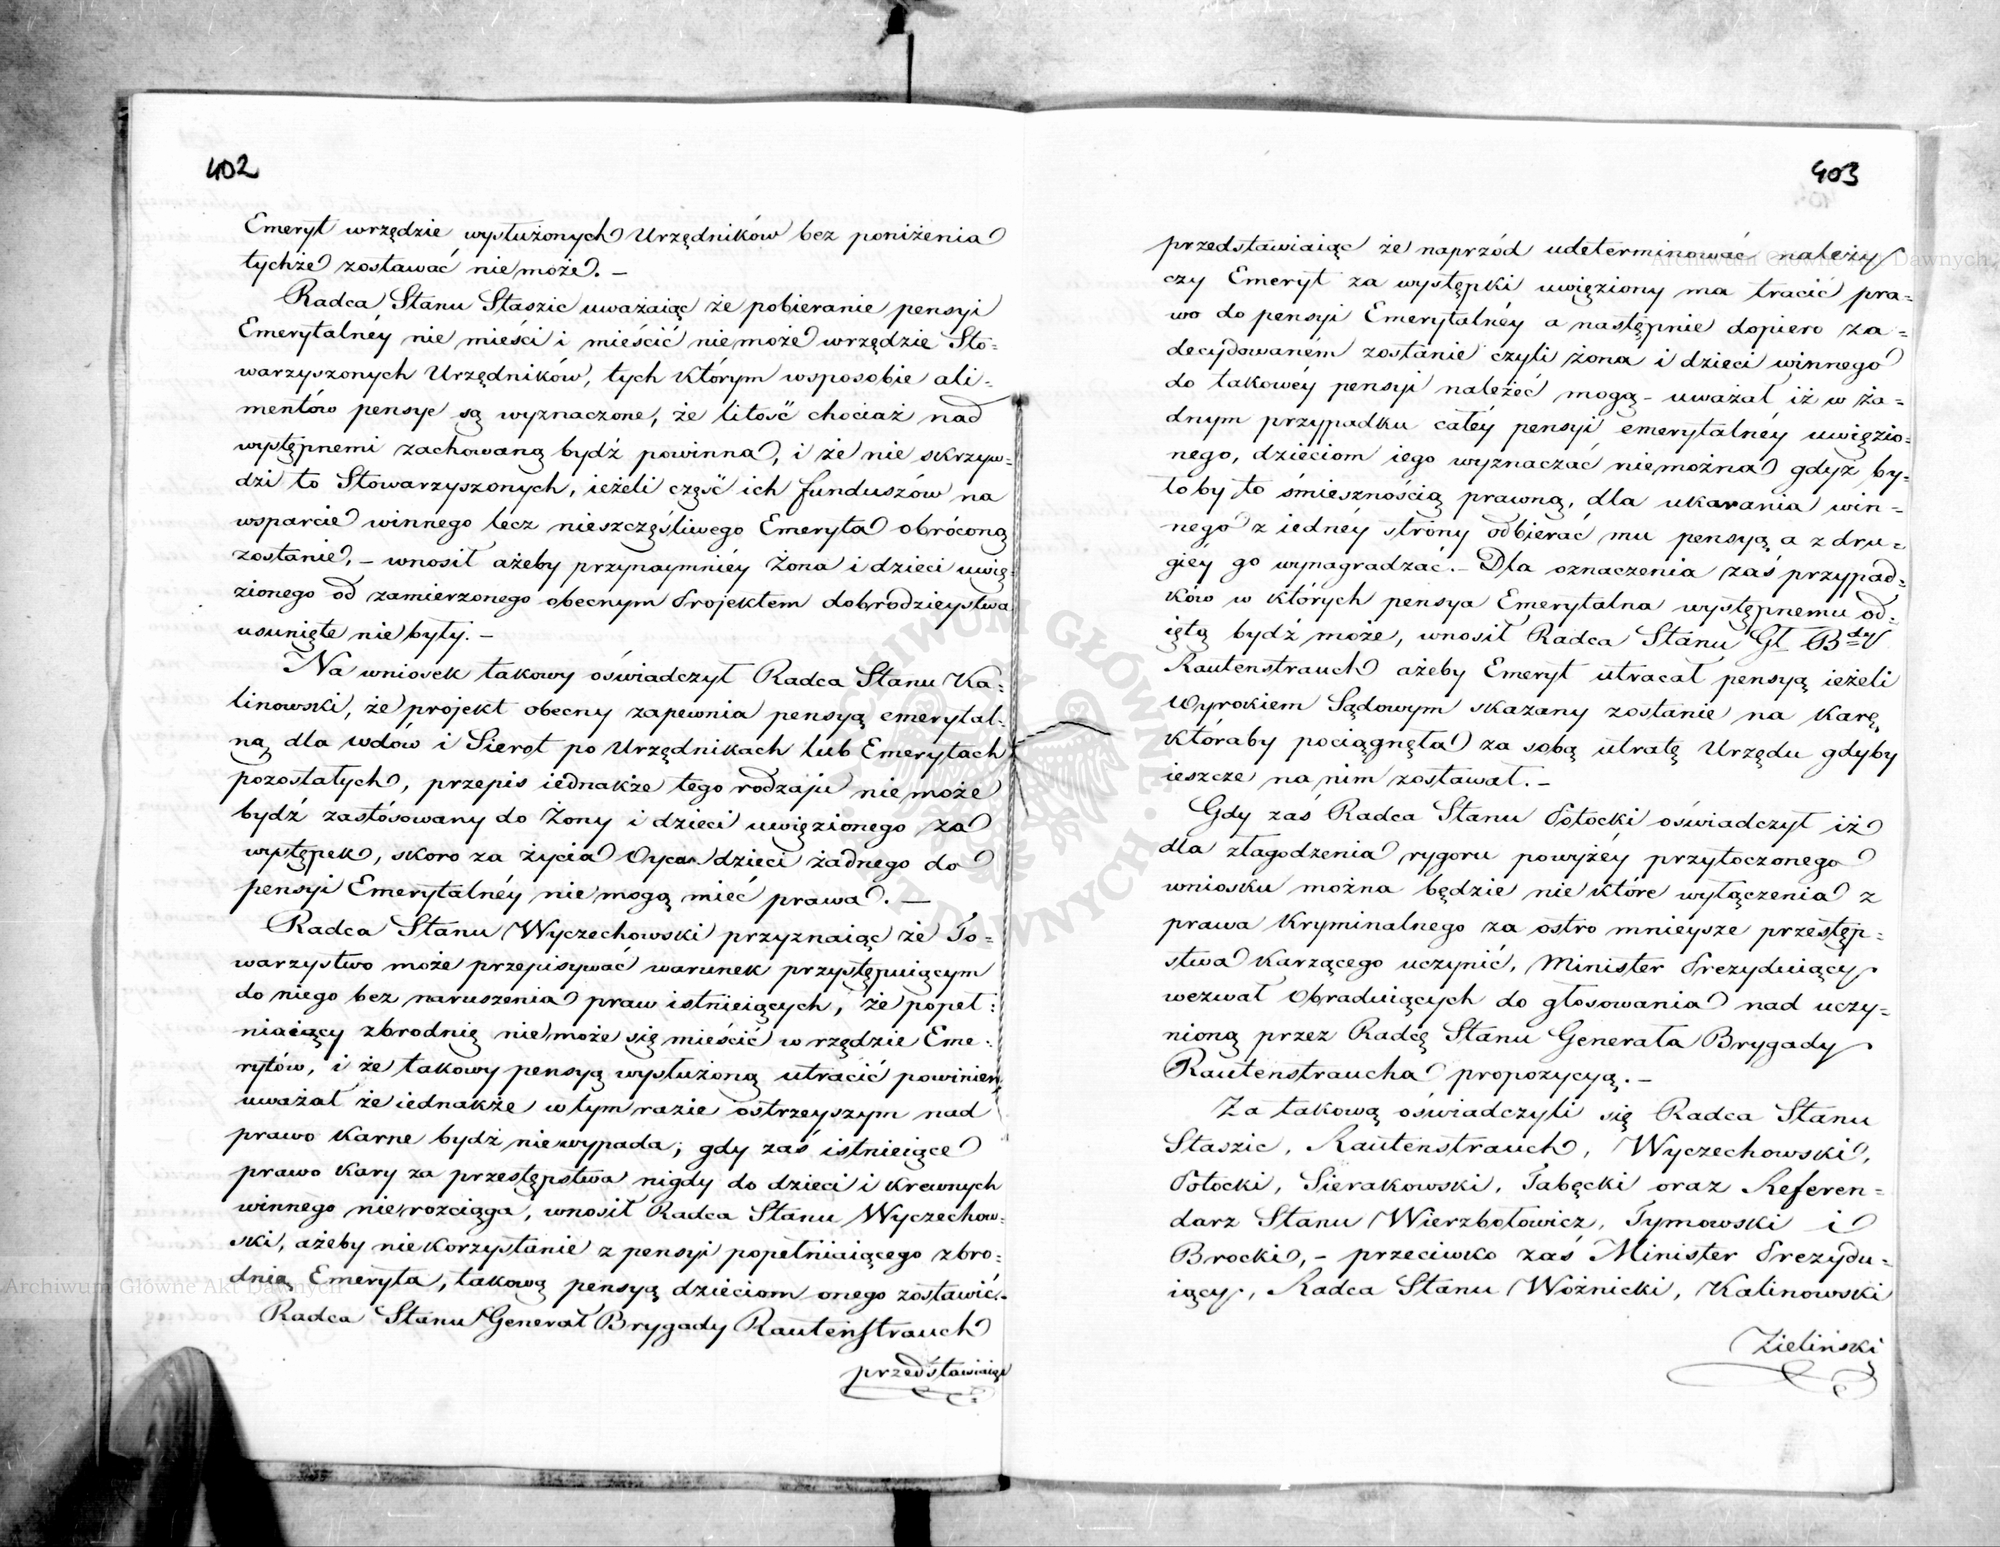 402
Emeryt wrzędzie wysłużonych Urzędników bez poniżenia
tychże zostawać niemoże. –
Radca Stanu Staszic uważaiąc że pobieranie pensyi
Emerytalnéy nie mieści i mieścić niemoże wrzędzie Sto=
warzyszonych Urzędników, tych którym wsposobie ali=
mentów pensye są wyznaczone, że litość chociaż nad
występnemi zachowaną bydź powinna, i że nie skrzyw=
dzi to Stowarzyszonych, ieżeli część ich funduszów na
wsparcie winnego lecz nieszczęśliwego Emeryta obróconą
zostanie, – wnosił ażeby przynaymniéy Żona i dzieci uwię=
zionego od zamierzonego obecnym Projektem dobrodzieystwa
usunięte niebyły. –
Na wniosek takowy oświadczył Radca Stanu Ka=
linowski, że projekt obecny zapewnia pensyą emerytal=
ną dla wdów i Sierot po Urzędnikach lub Emerytach
pozostałych, przepis iednakże tego rodzaju niemoże
bydź zastósowany do Żony i dzieci uwięzionego za
występek, skoro za życia Oyca dzieci żadnego do
pensyi Emerytalnéy niemogą mieć prawa. –
Radca Stanu Wyczechowski przyznaiąc że To=
warzystwo może przepisywać warunek przystępuiącym
do niego bez naruszenia praw istnieiących, że popeł=
niaiący zbrodnię niemoże się mieścić w rzędzie Eme=
rytów, i że takowy pensyą wysłużoną utracić powinien,
uważał że iednakże w tym razie ostrzeyszym nad
prawo karne bydź niewypada; gdy zaś istnieiące
prawo kary za przestępstwa nigdy do dzieci i krewnych
winnego nierozciąga, wnosił Radca Stanu Wyczechow=
ski, ażeby niekorzystanie z pensyi popełniaiącego zbro=
dnią Emeryta, takową pensyą dzieciom onego zostawić. –
Radca Stanu Generał Brygady Rautenstrauch
przedstawiaiąc
403
przedstawiaiąc że naprzód udeterminować należy
czy Emeryt za występki uwięziony ma tracić pra=
wo do pensyi Emerytalnéy a następnie dopiero za=
decydowaném zostanie czyli żona i dzieci winnego
do takowéy pensyi należeć mogą – uważał iż w ża=
dnym przypadku całéy pensyi emerytalnéy uwięzio=
nego, dzieciom iego wyznaczać niemożna gdyż by=
łoby to śmiesznością prawną, dla ukarania win=
nego z iednéy strony odbierać mu pensyą a z dru=
giéy go wynagradzać. – Dla oznaczenia zaś przypad=
ków w których pensya Emerytalna występnemu od=
iętą bydź może, wnosił Radca Stanu Gł Bdy
Rautenstrauch ażeby Emeryt utracał pensyą ieżeli
Wyrokiem Sądowym skazany zostanie na karę,
któraby pociągnęła za sobą utratę Urzędu gdyby
ieszcze na nim zostawał. –
Gdy zaś Radca Stanu Potocki oświadczył iż
dla złagodzenia rygoru powyżéy przytoczonego
wniosku można będzie nie które wyłączenia z
prawa kryminalnego za ostro mnieysze przestęp=
stwa karzącego uczynić, Minister Prezyduiący
wezwał Obraduiących do głosowania nad uczy=
nioną przez Radcę Stanu Generała Brygady
Rautenstraucha propozycyą. –
Za takową oświadczyli się Radca Stanu
Staszic, Rautenstrauch, Wyczechowski,
Potocki, Sierakowski, Tabęcki oraz Referen=
darz Stanu Wierzbołowicz, Tymowski i
Brocki, – przeciwko zaś Minister Prezydu=
iący, Radca Stanu Woźnicki, Kalinowski
Zieliński
Archiwum Główne Akt Dawnych